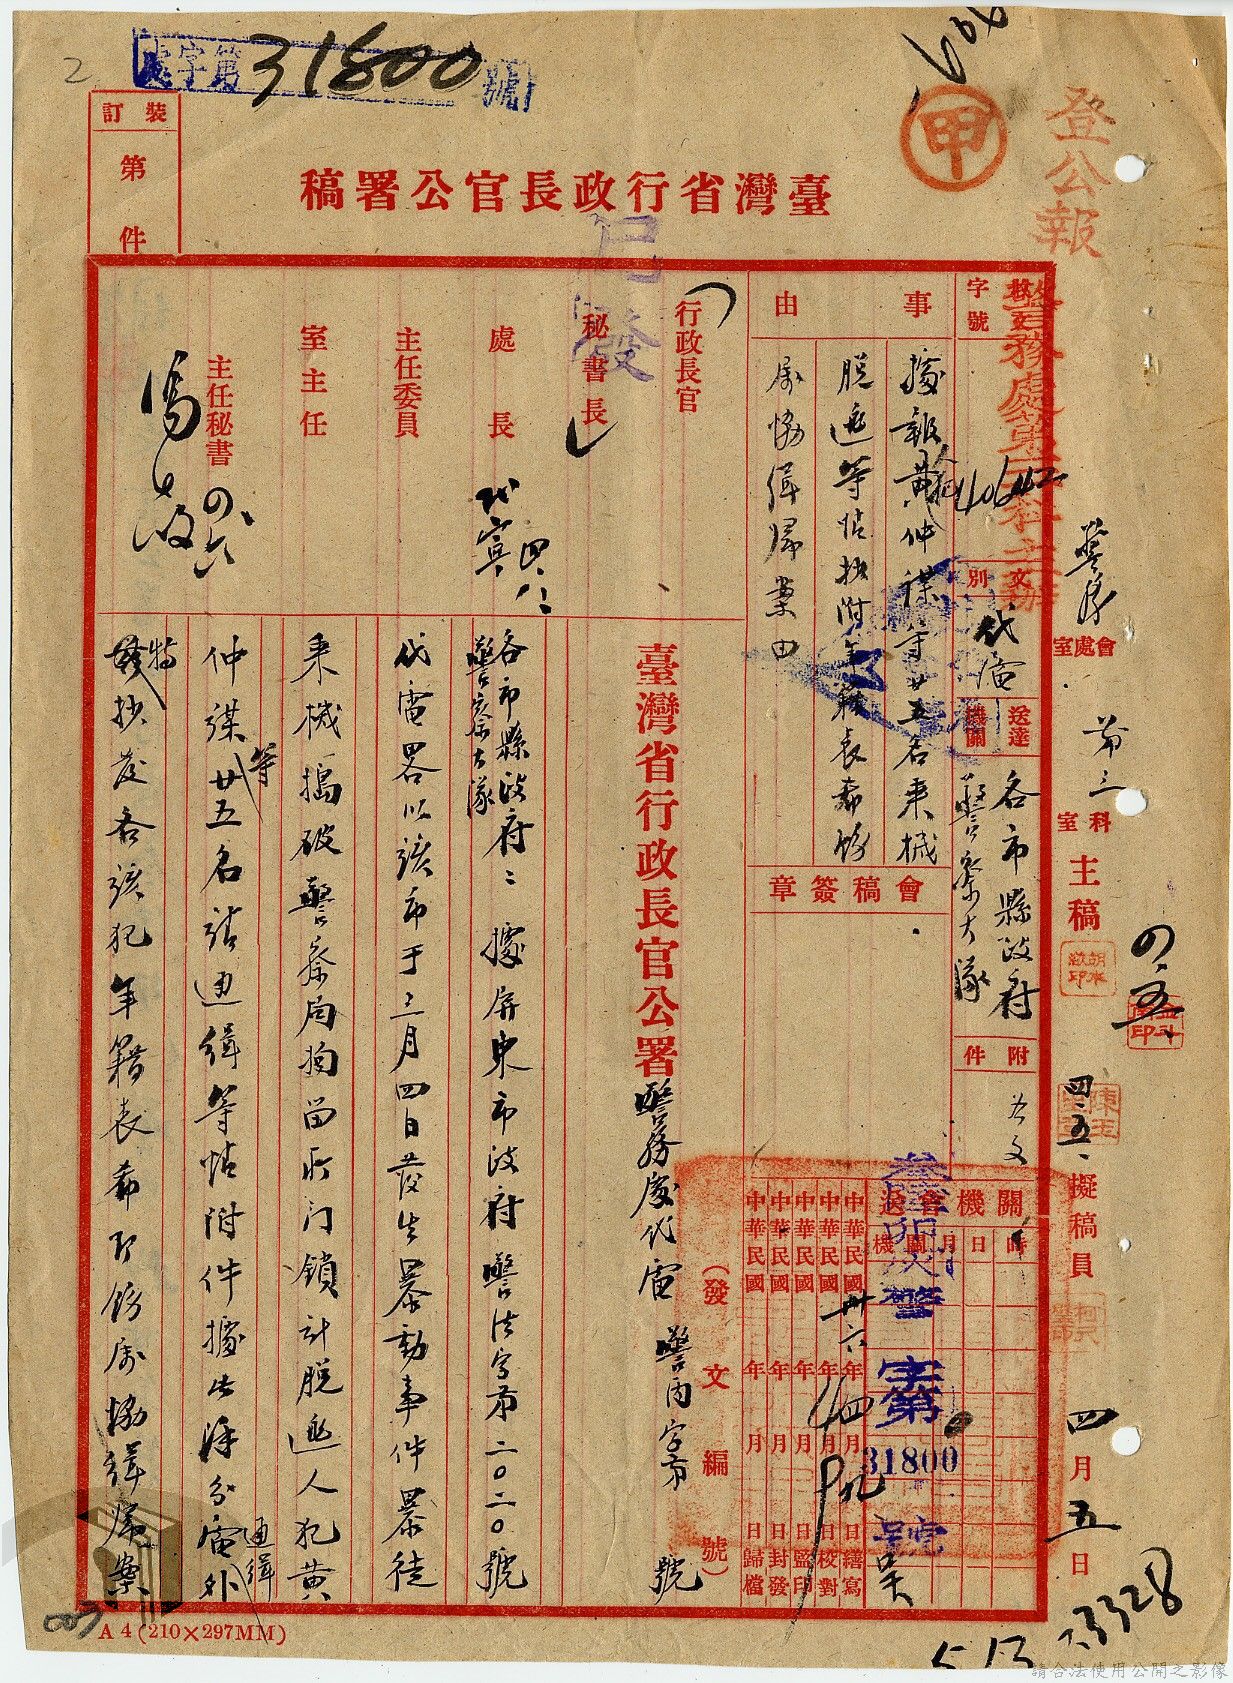 處字第31800號
2
登公報
甲
裝訂
第 件
臺灣省行政長官公署稿
已發
警務處第三科主辦
字號
文別
代電
送達機關
各市縣政府
警察大隊
附件
如文
事由
據報黃仲謀等廿五名乘機
脫逃等情抄附年籍表希飭
屬協緝歸案由
會稿簽章
行政長官
秘書長
處長
主任委員
室主任
主任秘書
會處室
第三科室主稿
擬稿員
四月五日
關機會送
時日月關機
叁陸卯灰警
字第31800號
中華民國卅六年四月 日繕寫
中華民國 年 月 日校對
中華民國 年 月 日監印
中華民國 年 月 日封發
中華民國 年 月 日歸檔
(發文編號)
臺灣省行政長官公署警務處代電 警丙字第 號
各市縣政府
警察大隊
據屏東市政府警法字第二〇二〇號
代電畧以該市于三月四日發生暴動事件暴徒
乘機搗破警察局拘留所門鎖計脫逃人犯黃
仲謀等廿五名請通緝等情附件據此除分電通緝外
特抄發各該犯年籍表希即飭屬協緝歸案
A4(210×297MM)
513
請合法使用公開之影像